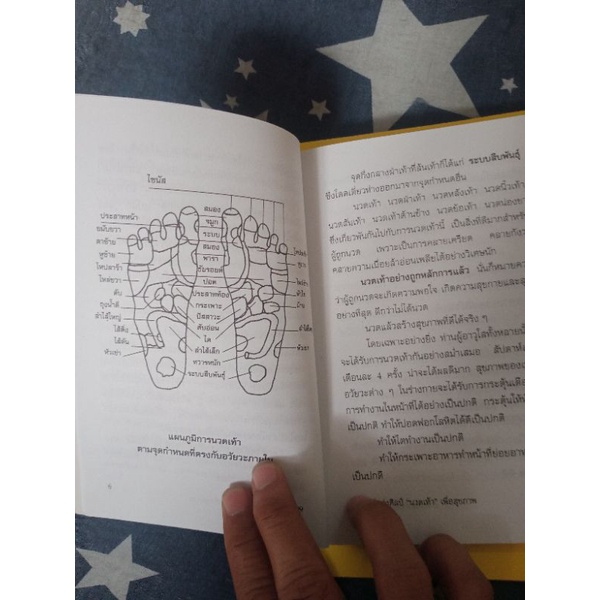 ไซนัส
สมอง
ประสาทหน้า
จมูก
ขมับขวา
ระบบ
ตาซ้าย
สมอง
หูซ้าย
พารา
ไหปลาร้า
ธัยรอยด์
ไหล่ขวา
ปอด
ตับ
ประสาทท้อง
หัวใจ
ถุงน้ำดี
กระเพาะ
ม้าม
ลำไส้ใหญ่
ปัสสาวะ
ไส้ติ่ง
ตับอ่อน
ไส้ตัน
ไต
หัวเข่า
ลำไส้เล็ก
หัวเข่า
ทวารหนัก
ระบบสืบพันธุ์
แผนภูมิการนวดเท้า
ตามจุดกำหนดที่ตรงกับอวัยวะภายใน
6
จุดกึ่งกลางฝ่าเท้าที่ส้นเท้าก็ได้แก่ ระบบสืบพันธุ์
ซึ่งโดดเดี่ยวห่างออกมาจากจุดกำหนดอื่น
นวดเท้า นวดฝ่าเท้า นวดหลังเท้า นวดนิ้วเท้า
นวดส้นเท้า นวดเท้าด้านข้าง นวดข้อเท้า นวดน่องขา
ซึ่งเกี่ยวพันกันไปกับการนวดเท้านี้ เป็นสิ่งที่ดีมากสำหรับ
ผู้ถูกนวด เพราะเป็นการคลายเครียด คลายกังวล
คลายความเมื่อยล้าอ่อนเพลียได้อย่างวิเศษนัก
นวดเท้าอย่างถูกหลักการแล้ว นั่นก็หมายความ
ว่าผู้ถูกนวดจะเกิดความพอใจ เกิดความสุขกายและสุข
อย่างที่สุด ดีกว่าไม่ได้นวด
นวดแล้วสร้างสุขภาพที่ดีได้จริง ๆ
โดยเฉพาะอย่างยิ่ง ท่านผู้อาวุโสทั้งหลายนั้น
จะได้รับการนวดเท้ากันอย่างสม่ำเสมอ สัปดาห์ละ
เดือนละ 4 ครั้ง น่าจะได้ผลดีมาก สุขภาพของ
อวัยวะต่าง ๆ ในร่างกายจะได้รับการกระตุ้นเตือน
การทำงานในหน้าที่ได้อย่างเป็นปกติ กระตุ้นให้
เป็นปกติ ทำให้ปอดฟอกโลหิตได้ดีเป็นปกติ
ทำให้ไตทำงานเป็นปกติ
ทำให้กระเพาะอาหารทำหน้าที่ย่อยอาหาร
เป็นปกติ
"นวดเท้า" เพื่อสุขภาพ